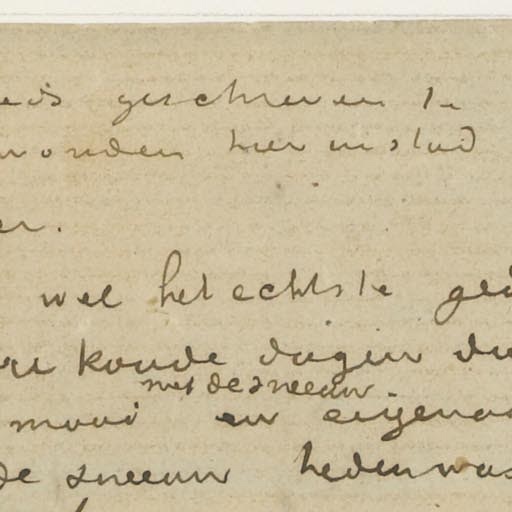 eds geschreven te
wonden hier in stad
er.
wel het echtste gei
re koude dagen di
met de sneeuw.
mooi en eigenaa
de sneeuw heden was